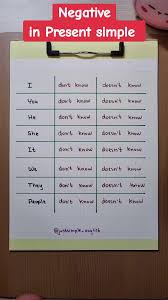 Negative
in Present simple
I don't know doesn't know
You don't know doesn't know
He don't know doesn't know
She don't know doesn't know
It don't know doesn't know
We don't know doesn't know
They don't know doesn't know
People don't know doesn't know